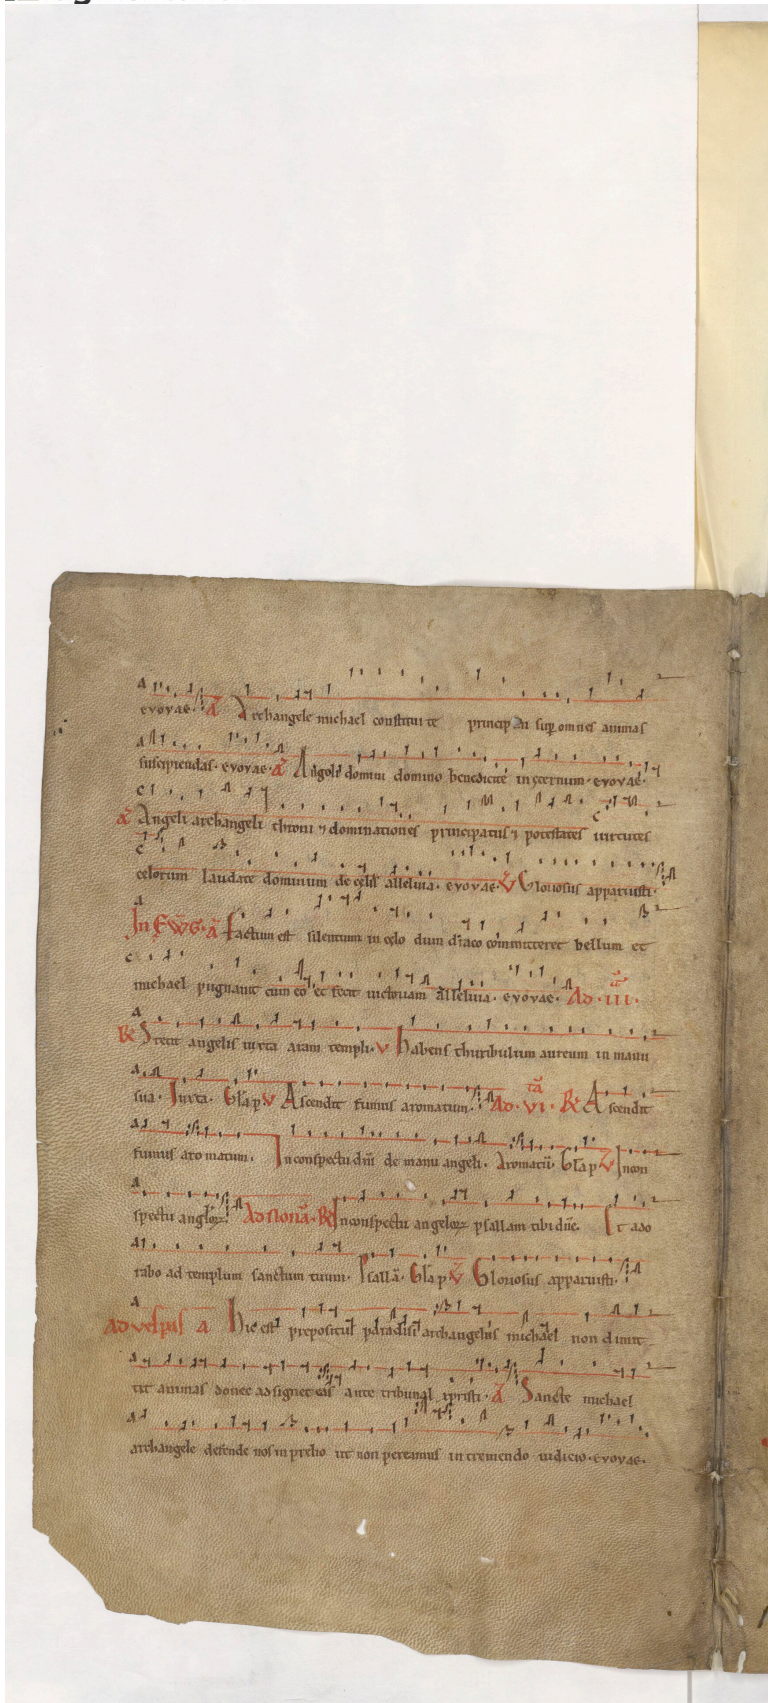 evovae. A Archangele michael constitui te principem sup omnes animas
suscipiendas. evovae. A Angeli domini domino benedicite in eternum. evovae.
A Angeli archangeli throni ⁊ dominationes principatus ⁊ potestates uirtutes
celorum laudate dominum de celis alleluia. evovae. V Gloriosus apparuisti.
In EwG. A Factum est silentium in celo dum draco committeret bellum et
michael pugnauit cum eo et fecit uictoriam alleluia. evovae. Ad .III.
R Stetit angelus iuxta aram templi. V Habens thuribulum aureum in manu
sua. Iuxta. Gła p V Ascendit fumus aromatum. Ad .VI. R Ascendit
fumus aromatum. In conspectu dñi de manu angeli. Aromatũ. Gła p V In con
spectu angloꝝ. Ad nonã. R In conspectu angeloꝝ psallam tibi dñe. Et ado
rabo ad templum sanctum tuum. Psallã. Gła p V Gloriosus apparuisti.
ad vesꝑas a Hic est prepositus paradisi archangelus michael non dimit
tit animas donec adsignet eas ante tribunal xpristi. A Sancte michael
archangele defende nos in prelio ut non pereamus in tremendo iudicio. evovae.